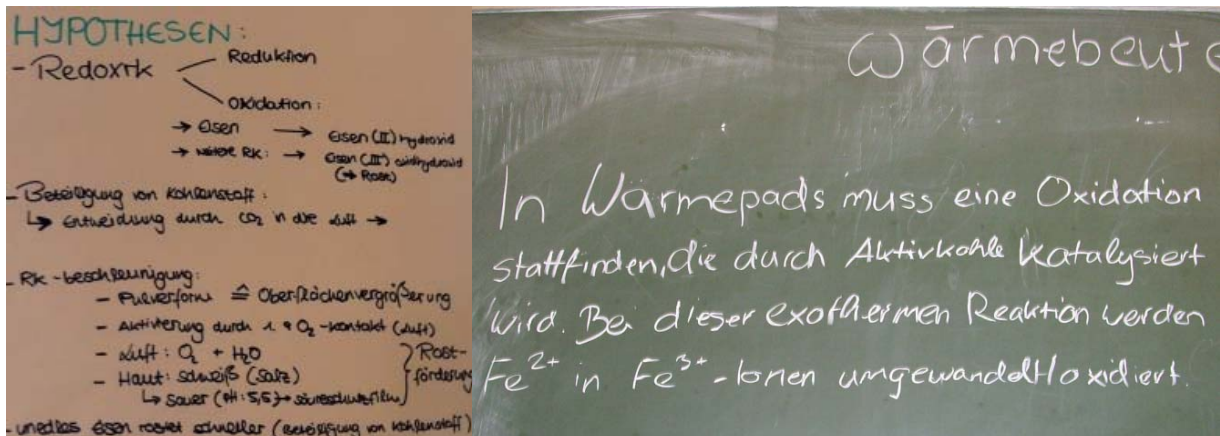 HYPOTHESEN:
- Redoxrk
Reduktion
Oxidation:
→ Eisen → Eisen (II) hydroxid
→ weitere RK: → Eisen (III) oxidhydroxid
(→ Rost)
- Beteiligung von Kohlenstoff:
↳ Entweichung durch CO₂ in die Luft →
- RK-beschleunigung:
- Pulverform ≙ Oberflächenvergrößerung
- Aktivierung durch O₂-Kontakt (Luft)
- Luft: O₂ + H₂O
- Haut: Schweiß (Salz)
↳ sauer (pH: 5,5) → säureschutzfilm
Rost-
förderung
- unedles Eisen rostet schneller (Beteiligung von Kohlenstoff)
Wärmebeute
In Wärmepads muss eine Oxidation
stattfinden, die durch Aktivkohle katalysiert
wird. Bei dieser exothermen Reaktion werden
Fe²⁺ in Fe³⁺-Ionen umgewandelt/oxidiert.